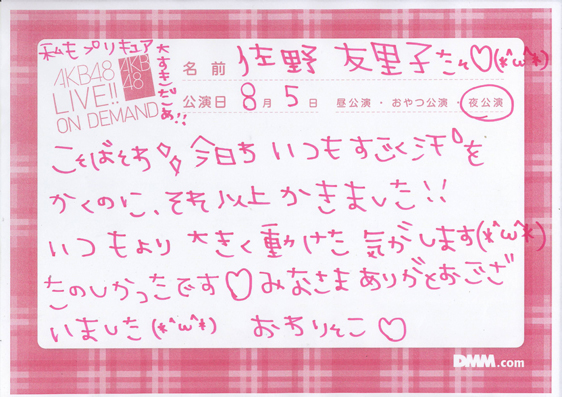 私もプリキュア
大すきだぁ!!
AKB48
LIVE!!
ON DEMAND
AKB
48
名前 佐野 友里子たん♡(*^ω^*)
公演日 8月5日 昼公演・おやつ公演・夜公演
こんばんわ 今日わ いつもすごく汗を
かくのに、それ以上かきました!!
いつもより 大きく動けた 気がします(*^ω^*)
たのしかったです♡みなさまありがとおござ
いました(*^ω^*) おわりんこ♡
DMM.com